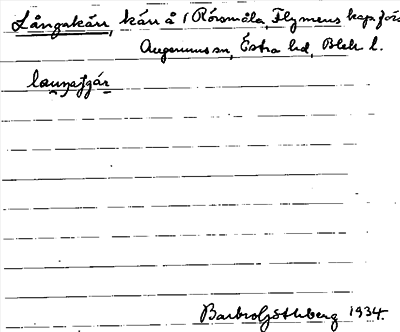 Långakärr, kärr å 1 Rörsmåla, Flymens kapförs
Augerums sn, Östra hd, Blek l.
Barbro Göthberg 1934.